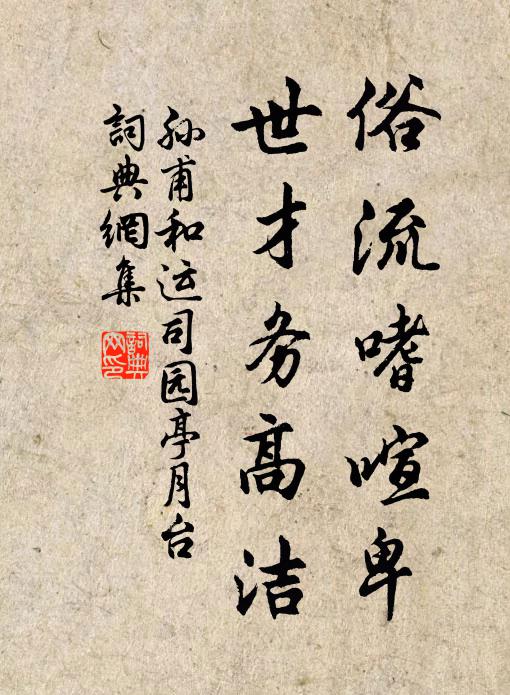 俗流嗜喧卑
世才务高洁
孙甫和运司园亭月台
詞典網集
詞典网印